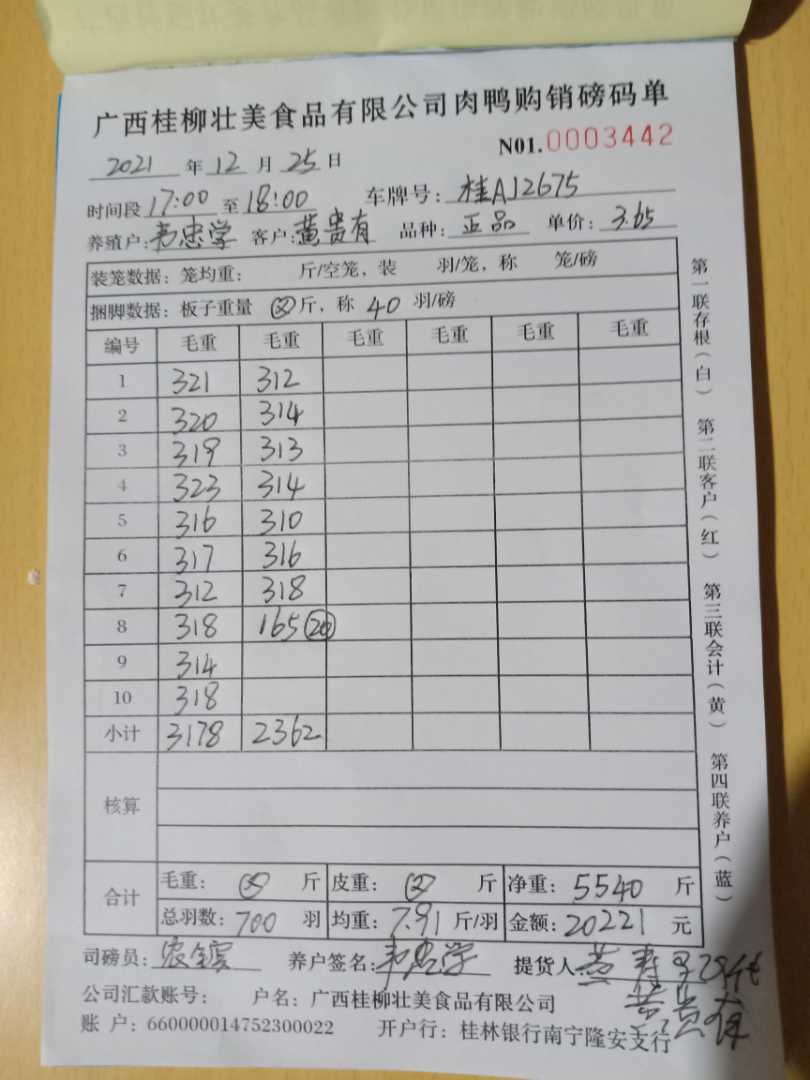 广西桂柳壮美食品有限公司肉鸭购销磅码单
N01.0003442
2021 年 12 月 25 日
时间段 17:00 至 18:00 车牌号: 桂A12675
养殖户: 韦忠学 客户: 黄贵有 品种: 正品 单价: 3.65
装笼数据: 笼均重: 斤/空笼, 装 羽/笼, 称 笼/磅
捆脚数据: 板子重量 斤, 称 40 羽/磅
编号 毛重 毛重 毛重 毛重 毛重 毛重
1 321 312
2 320 314
3 319 313
4 323 314
5 316 310
6 317 316
7 312 318
8 318 165 20
9 314
10 318
小计 3178 2362
核算
合计 毛重: 斤 皮重: 斤 净重: 5540 斤
总羽数: 700 羽 均重: 7.91 斤/羽 金额: 20221 元
司磅员: 养户签名: 韦忠学 提货人: 黄
黄贵有
公司汇款账号: 户名: 广西桂柳壮美食品有限公司
账 户: 660000014752300022 开户行: 桂林银行南宁隆安支行
第一联存根(白) 第二联客户(红) 第三联会计(黄) 第四联养户(蓝)